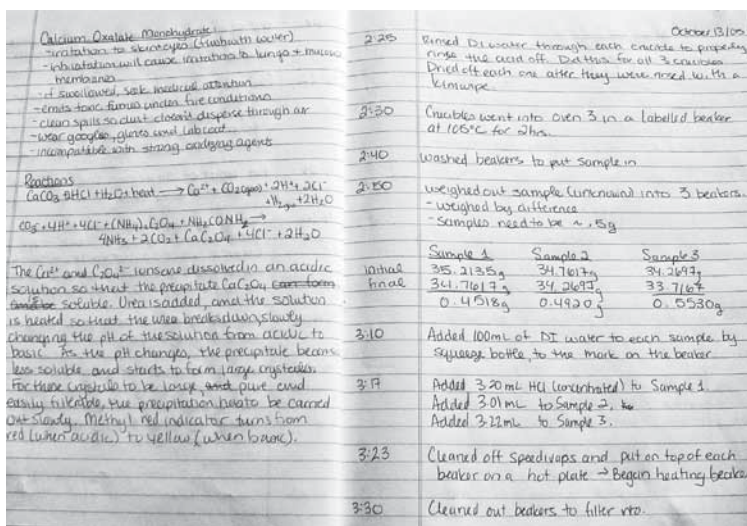 Calcium Oxalate Monohydrate
-irratation to skin+eyes (flush with water)
-inhalatation will cause irratation to lungs + mucous
membranes
-if swallowed, seek medical attention
-emits toxic fumes under fire conditions
-clean spills so dust doesn't disperse through air
-wear goggles, gloves and labcoat
-incompatible with strong oxidizing agents
Reactions
CaCO3 + 2HCl + H2O + heat → Ca2+ + CO2 + 2H+ + 2Cl-
+ 2H2O
4NH3 + 2CO2 + CaC2O4 + 4Cl- + 2H2O
The Ca2+ and C2O4 2- ions are dissolved in an acidic
solution so that the precipitate CaC2O4
soluble. Urea is added, and the solution
is heated so that the urea breaks down, slowly
changing the pH of the solution from acidic to
basic. As the pH changes, the precipitate becomes
less soluble and starts to form large crystals.
For these crystals to be large, pure and
easily filterable, the precipitation has to be carried
out slowly. Methyl red indicator turns from
red (when acidic) to yellow (when basic).
October 13/05
2:25 Rinsed DI water through each crucible to properly
rinse the acid off. Did this for all 3 crucibles
Dried off each one after they were rinsed with a
kimwipe.
2:30 Crucibles went into oven 3 in a labelled beaker
at 105°C for 2hrs.
2:40 washed beakers to put sample in
2:50 weighed out sample (unknown) into 3 beakers
- weighed by difference
- samples need to be ~ .5g
Sample 1 Sample 2 Sample 3
initial 35.2135g 34.7617g 34.2697g
final 34.7617g 34.2697g 33.7167
0.4518g 0.4920g 0.5530g
3:10 Added 100mL of DI water to each sample by
squeeze bottle, to the mark on the beaker
3:17 Added 3.20 mL HCl (concentrated) to Sample 1.
Added 3.01 mL to Sample 2,
Added 3.22 mL to Sample 3.
3:23 Cleaned off speedivaps and put on top of each
beaker on a hot plate → Began heating beake
3:30 Cleaned out beakers to filter into.